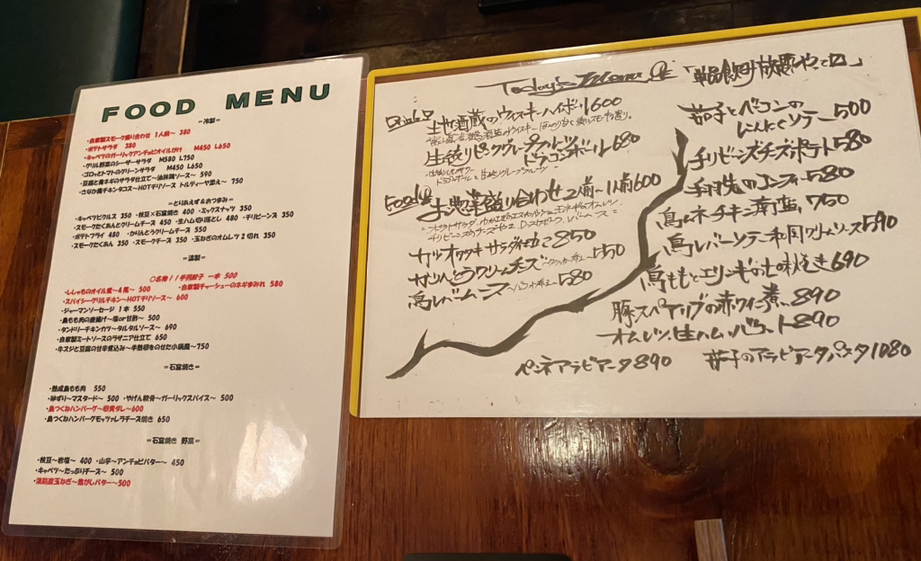 FOOD MENU
=冷製=
・自家製スモーク盛り合わせ 1人前〜 380
・ポテトサラダ 380
・キャベツのガーリックアンチョビオイルがけ M450 L650
・グリル野菜のシーザーサラダ M580 L750
・ゴロっとトマトのグリーンサラダ M450 L650
・豆腐と青ネギのサラダ仕立て〜油淋鶏ソース〜 590
=とりあえず&おつまみ=
・キャベツピクルス 350 ・枝豆×石窯焼き 400 ・ミックスナッツ 350
・スモークたくあんとクリームチーズ 450 ・生ハム切り落とし 480 ・チリビーンズ 350
・ポテトフライ 480 ・かりんとうクリームチーズ 550
・スモークたくあん 350 ・スモークチーズ 350 ・玉ねぎのオムレツ2切れ 350
=温製=
一本 500
・ししゃものオイル煮〜4尾〜 500 ・自家製チャーシューのネギまみれ 580
・スパイシーグリルチキン〜HOTチリソース〜 600
・ジャーマンソーセージ 1本 550
・鳥もも肉の唐揚げ〜塩or甘酢〜 500
・タンドリーチキンカツ〜タルタルソース〜 690
・自家製ミートソースのラザニア仕立て 650
・牛スジと豆腐の甘辛煮込み〜半熟卵をのせた小鍋風〜750
=石窯焼き=
・熟成鳥もも肉 550
・砂ずり〜マスタード〜 500 ・やげん軟骨〜ガーリックスパイス〜 500
・鳥つくねハンバーグ〜和食ダレ〜600
・鳥つくねハンバーグモッツァレラチーズ焼き 650
=石窯焼き 野菜=
・枝豆〜岩塩〜 400 ・山芋〜アンチョビバター〜 450
・キャベツ〜たっぷりチーズ〜 500
・淡路産玉ねぎ〜焦がしバター〜500
Today's Menu
「単品飲み放題やってロ」
Drink
酒蔵のウィスキーハイボール600
生絞りピンクグレープフルーツ
ドラゴンボール 680
Food
お惣菜盛り合わせ 2人前〜1人前600
カツオタタキ サラダ仕立て 850
かりんとうクリームチーズ 550
鳥レバームース 580
茄子とベーコンの
にんにくソテー 500
チリビーンズチーズポテト 580
手羽先のコンフィ 580
鳥ネギチキン南蛮 750
鳥レバーソテー 和風クリームソース 590
鳥ももとエリンギの 焼き 690
豚スペアリブの赤ワイン煮 890
オムレツ、生ハム、バゲット 890
ペンネアラビアータ 890
茄子のアラビアータパスタ 1080